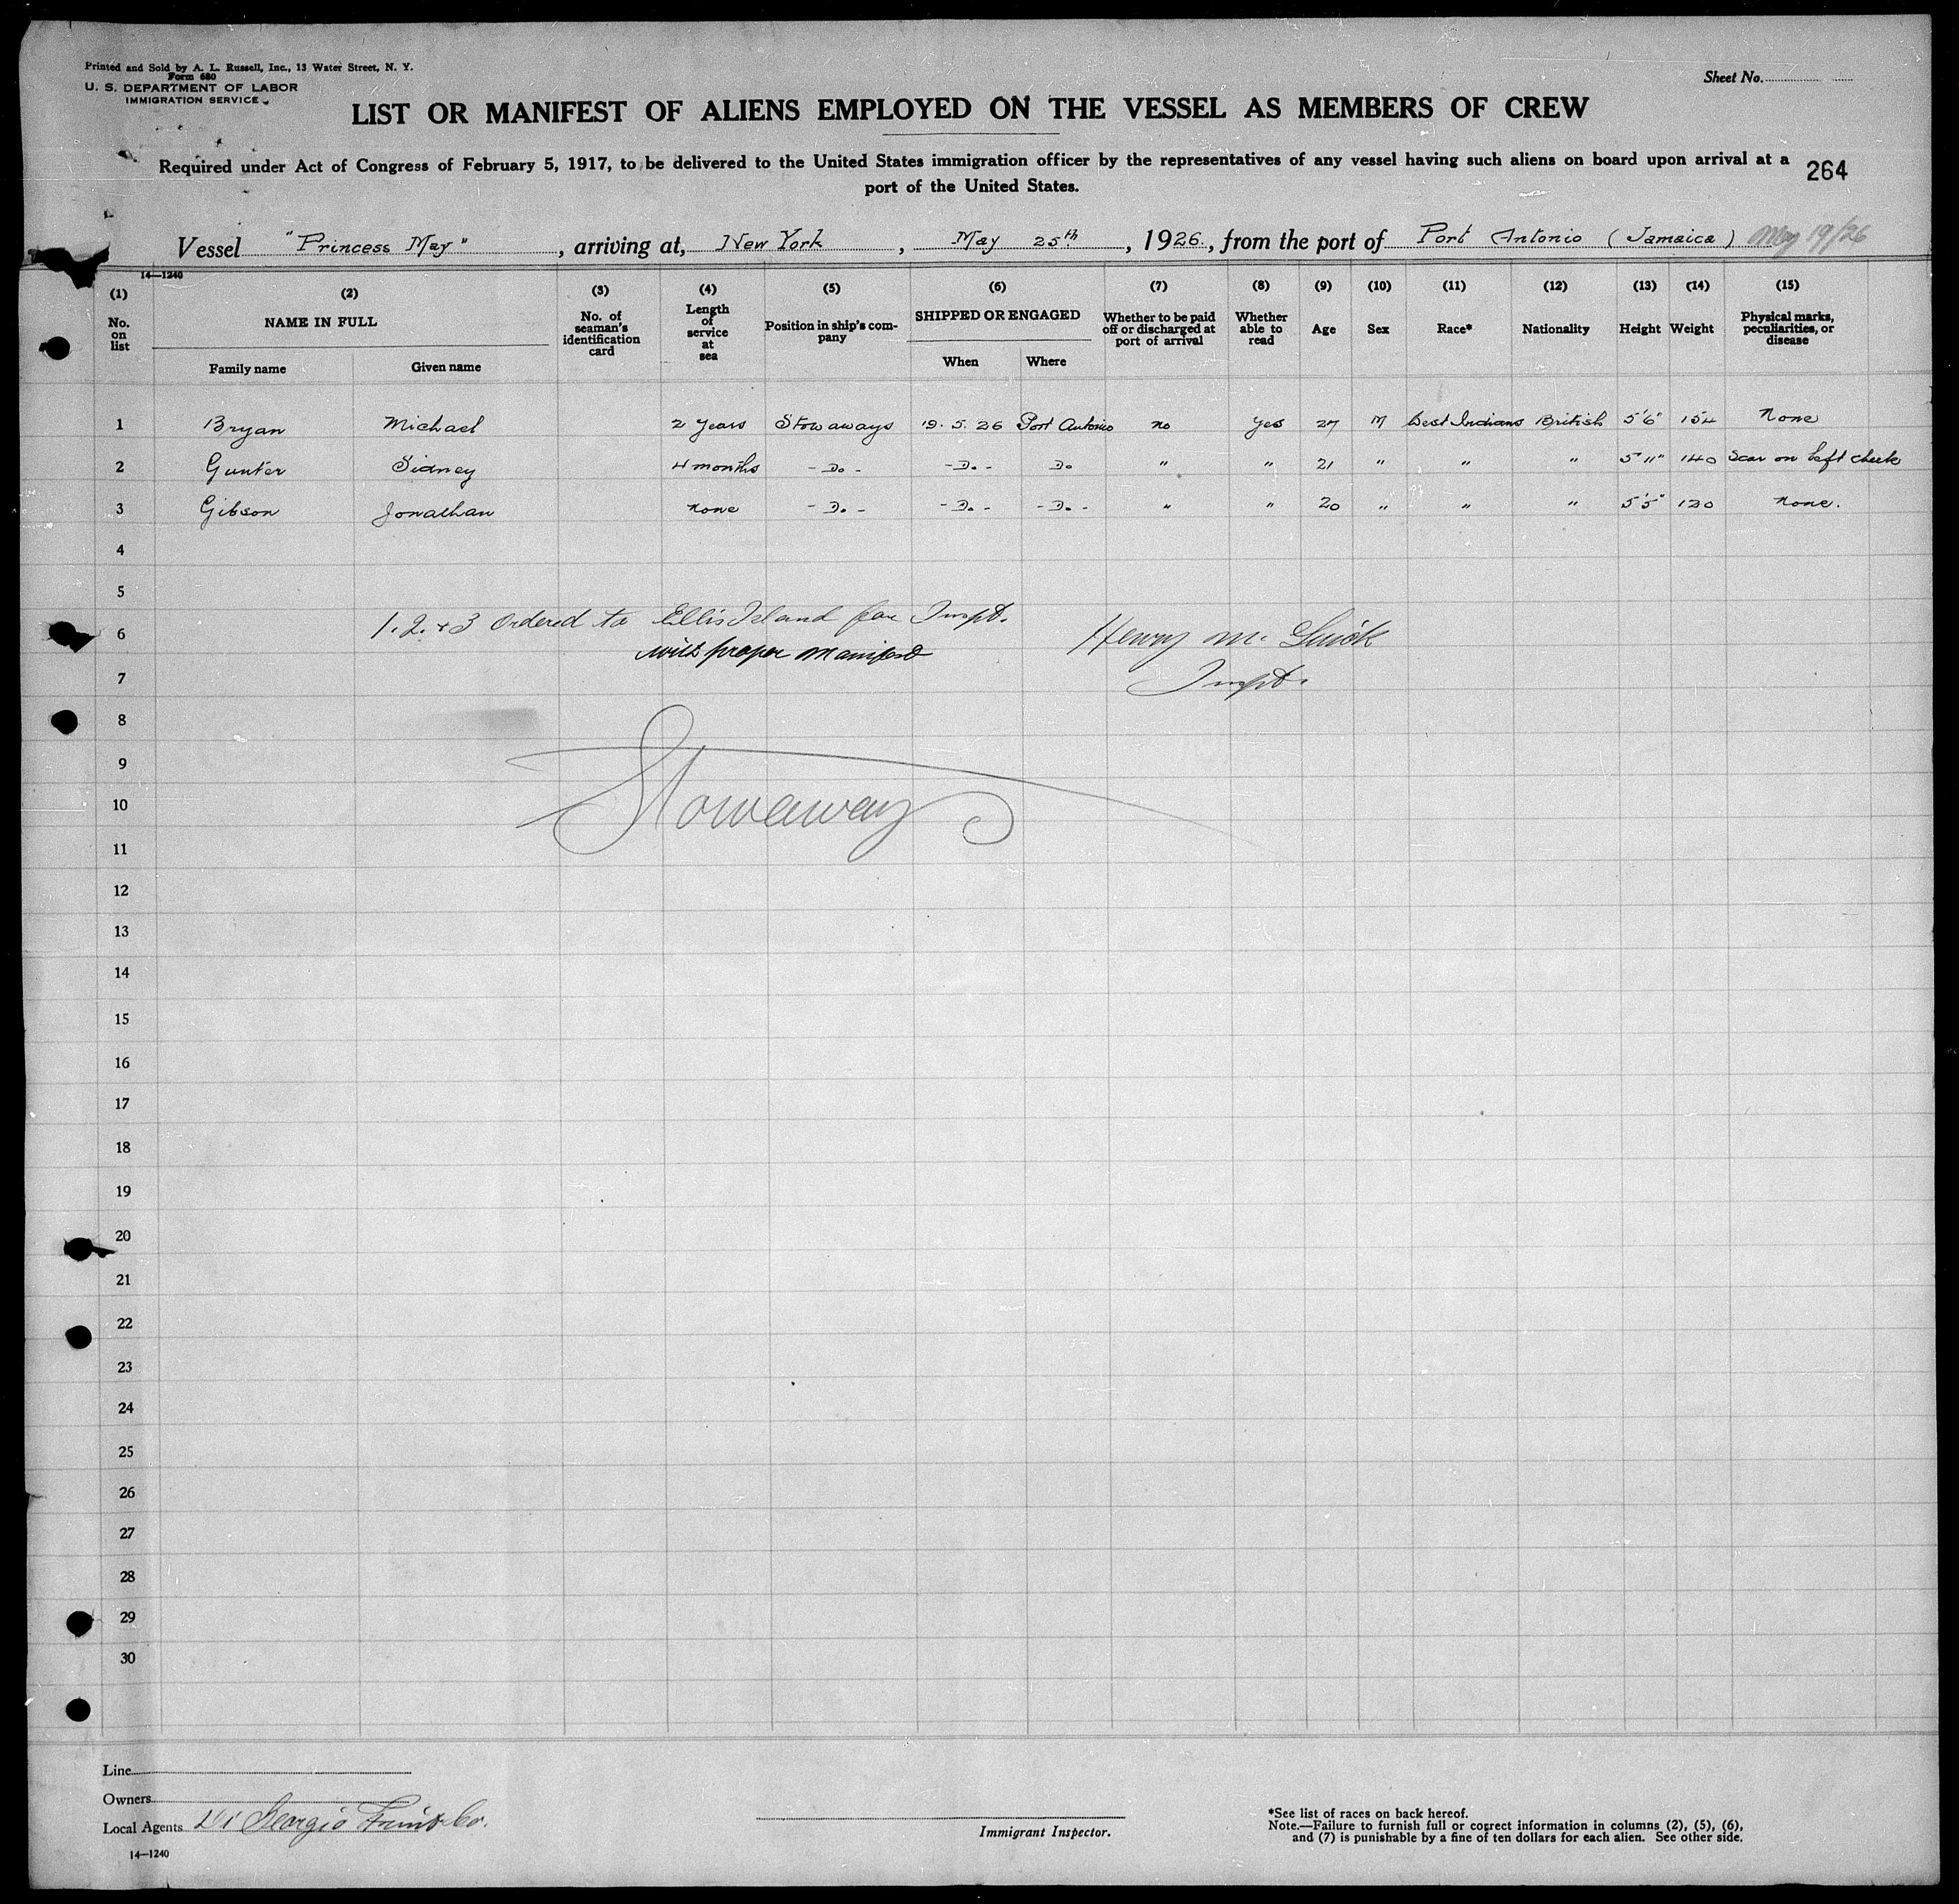 Printed and Sold by A. L. Russell, Inc., 13 Water Street, N. Y.
Form 680
U. S. DEPARTMENT OF LABOR
IMMIGRATION SERVICE
Sheet No.
LIST OR MANIFEST OF ALIENS EMPLOYED ON THE VESSEL AS MEMBERS OF CREW
Required under Act of Congress of February 5, 1917, to be delivered to the United States immigration officer by the representatives of any vessel having such aliens on board upon arrival at a
port of the United States.
264
Vessel "Princess May", arriving at, New York, May 25th, 1926., from the port of Port Antonio (Jamaica) May 19/26
14—1240
(1) (2) (3) (4) (5) (6) (7) (8) (9) (10) (11) (12) (13) (14) (15)
No. on list NAME IN FULL No. of seaman's identification card Length of service at sea Position in ship's company SHIPPED OR ENGAGED Whether to be paid off or discharged at port of arrival Whether able to read Age Sex Race* Nationality Height Weight Physical marks, peculiarities, or disease
Family name Given name When Where
1 Bryan Michael 2 years Stowaways 19. 5. 26 Port Antonio no Yes 27 M West Indians British 5'6" 154 None
2 Gunter Sidney 4 months - Do - - Do - Do " " 21 " " " 5'11" 140 Scar on left cheek
3 Gibson Jonathan none - Do - - Do - - Do - " " 20 " " " 5'5" 120 None.
4
5
1. 2. + 3 Ordered to Ellis Island for Inspt.
6
with proper manifest
Henry Mc
7
Inspt.
8
9
10
Stowaway
11
12
13
14
15
16
17
18
19
20
21
22
23
24
25
26
27
28
29
30
Line
Owners
Local Agents Di Georgio Fruit Co.
14—1240
Immigrant Inspector.
*See list of races on back hereof.
Note.—Failure to furnish full or correct information in columns (2), (5), (6),
and (7) is punishable by a fine of ten dollars for each alien. See other side.